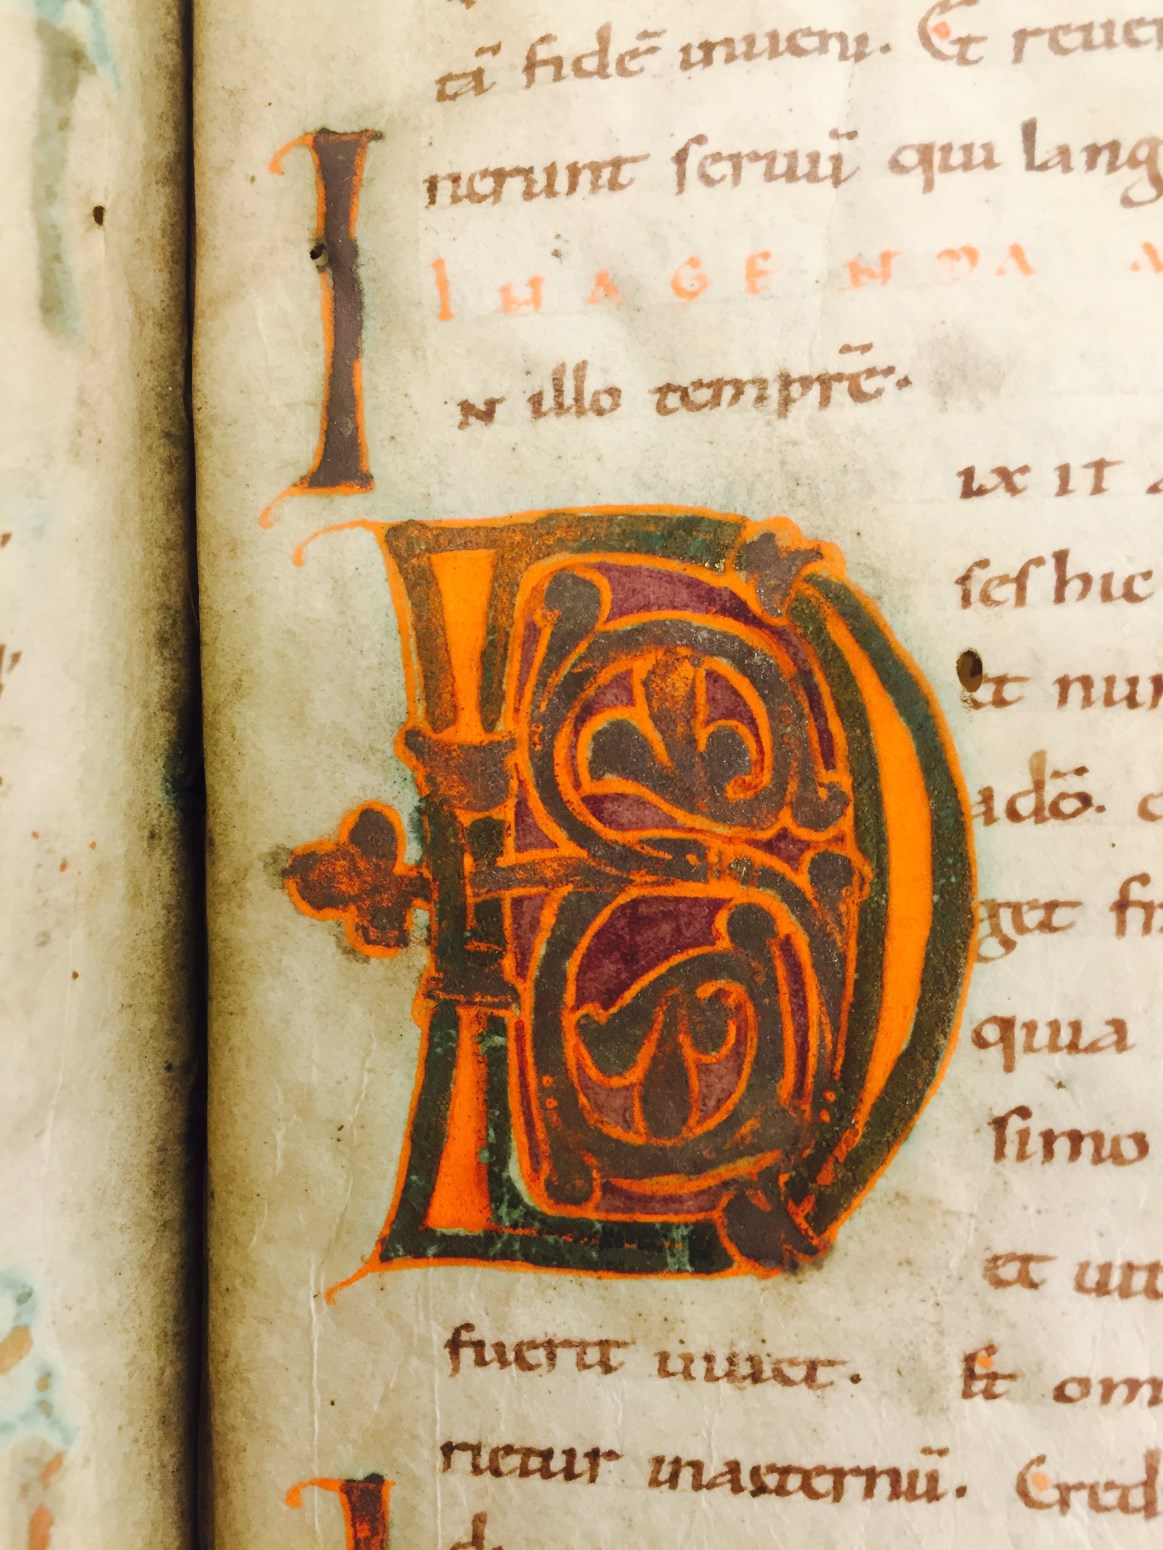 tā fidē inueni. Et reuer
nerunt seruū qui lang
IN AGENDA A
IN illo tempr̄e.
DIXIT
ses hic
et nun
adō.
get fr
quia
simo
et uiu
fuerit uiuet. Et om
rietur inaeternū. Cred